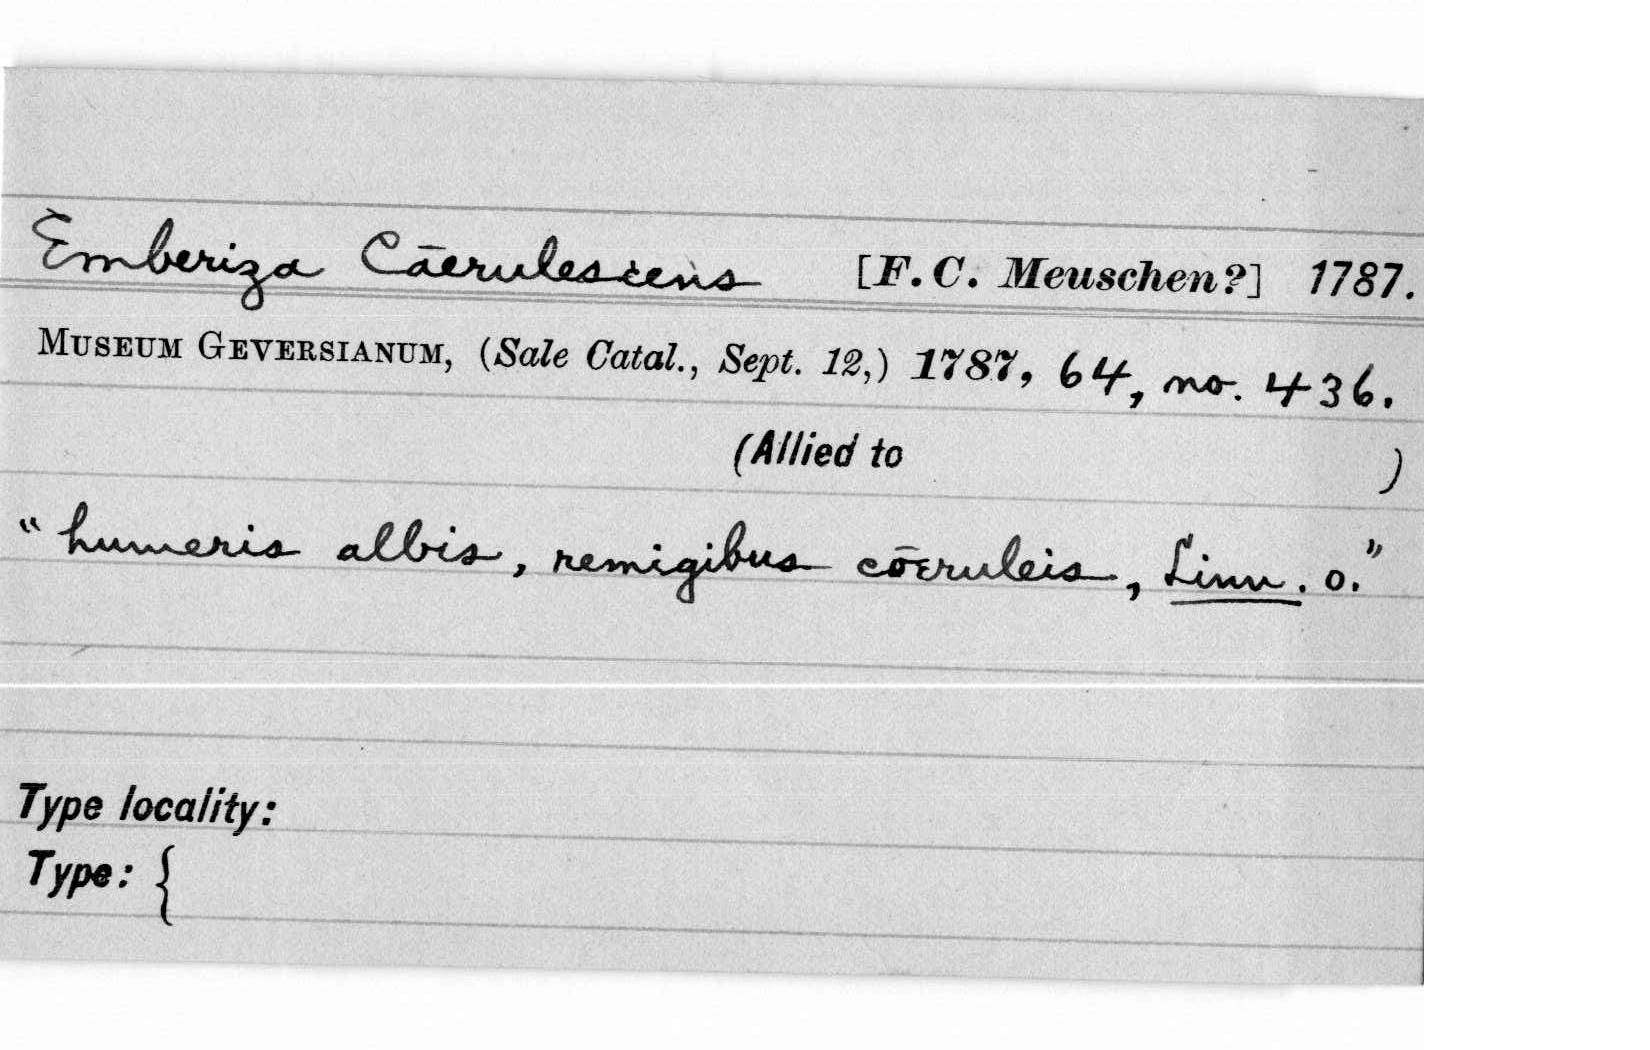 Emberiza Cāerulescens [F. C. Meuschen?] 1787.
MUSEUM GEVERSIANUM, (Sale Catal., Sept. 12,) 1787, 64, no. 436.
(Allied to )
"humeris albis, remigibus cōeruleis, Linn. o."
Type locality:
Type: {